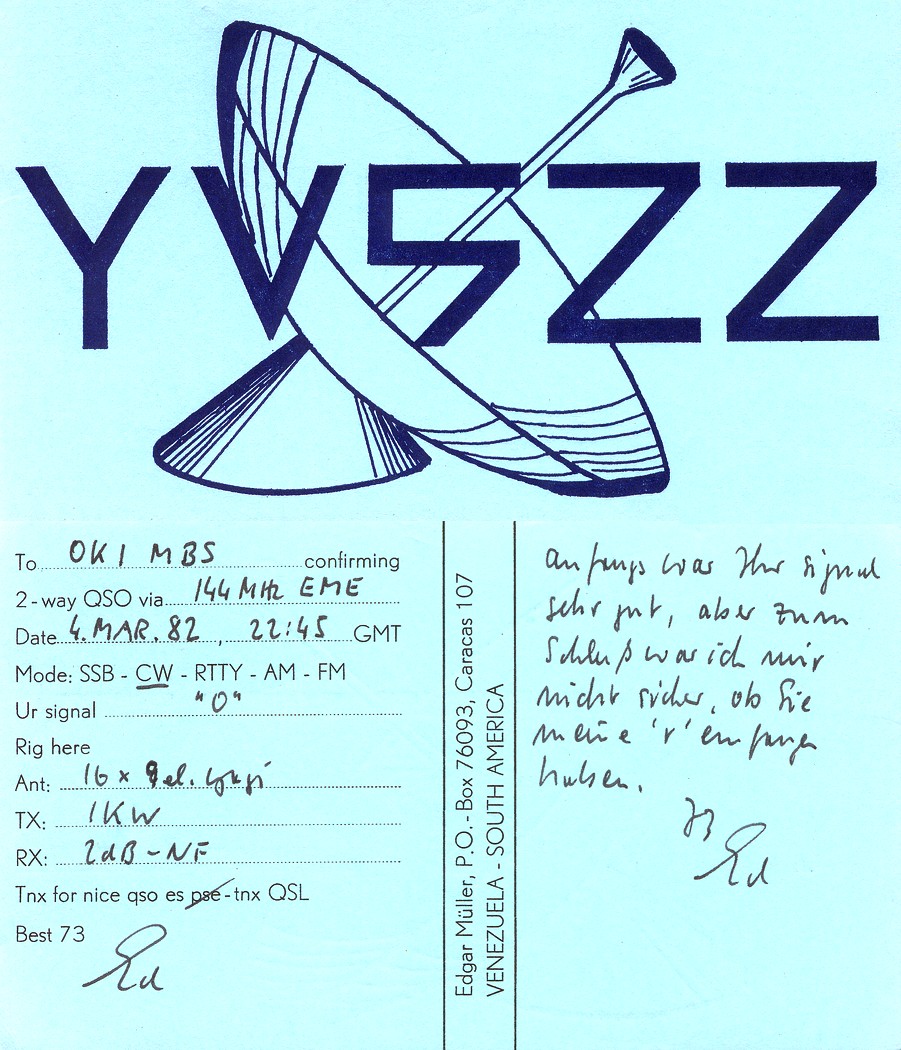 YV5ZZ
To OK1MBS confirming
2-way QSO via 144 MHz EME
Date 4. MAR. 82, 22:45 GMT
Mode: SSB - CW - RTTY - AM - FM
Ur signal "O"
Rig here
Ant: 16 x 9el. Yagi
TX: 1KW
RX: 2dB-NF
Tnx for nice qso es pse-tnx QSL
Best 73
Ed
Edgar Müller, P.O.-Box 76093, Caracas 107
VENEZUELA - SOUTH AMERICA
Anfangs war Ihr Signal
sehr gut, aber zum
Schluß war ich mir
nicht sicher, ob Sie
meine 'r' empfangen
haben.
73
Ed